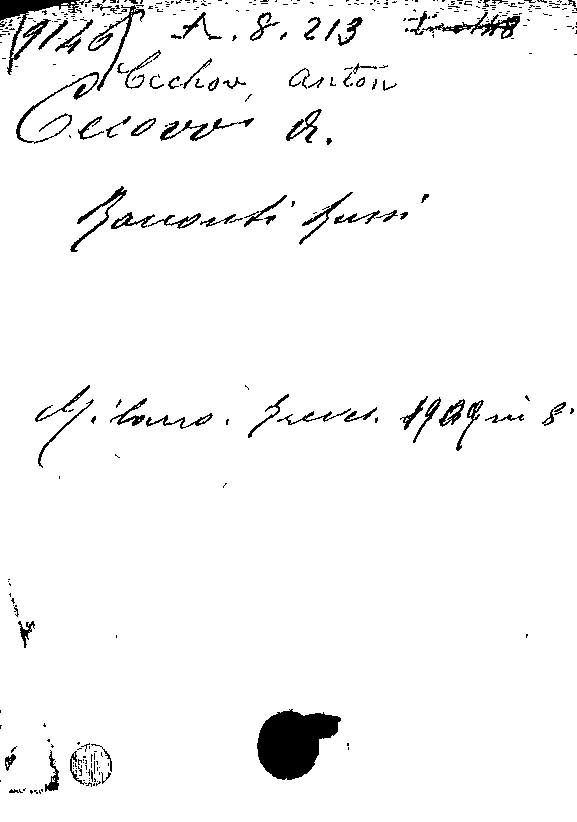 (9146) A. 8. 213
Cechov, Anton
Cecovv A.
Racconti Russi
Milano. Treves. 1909 in 8.